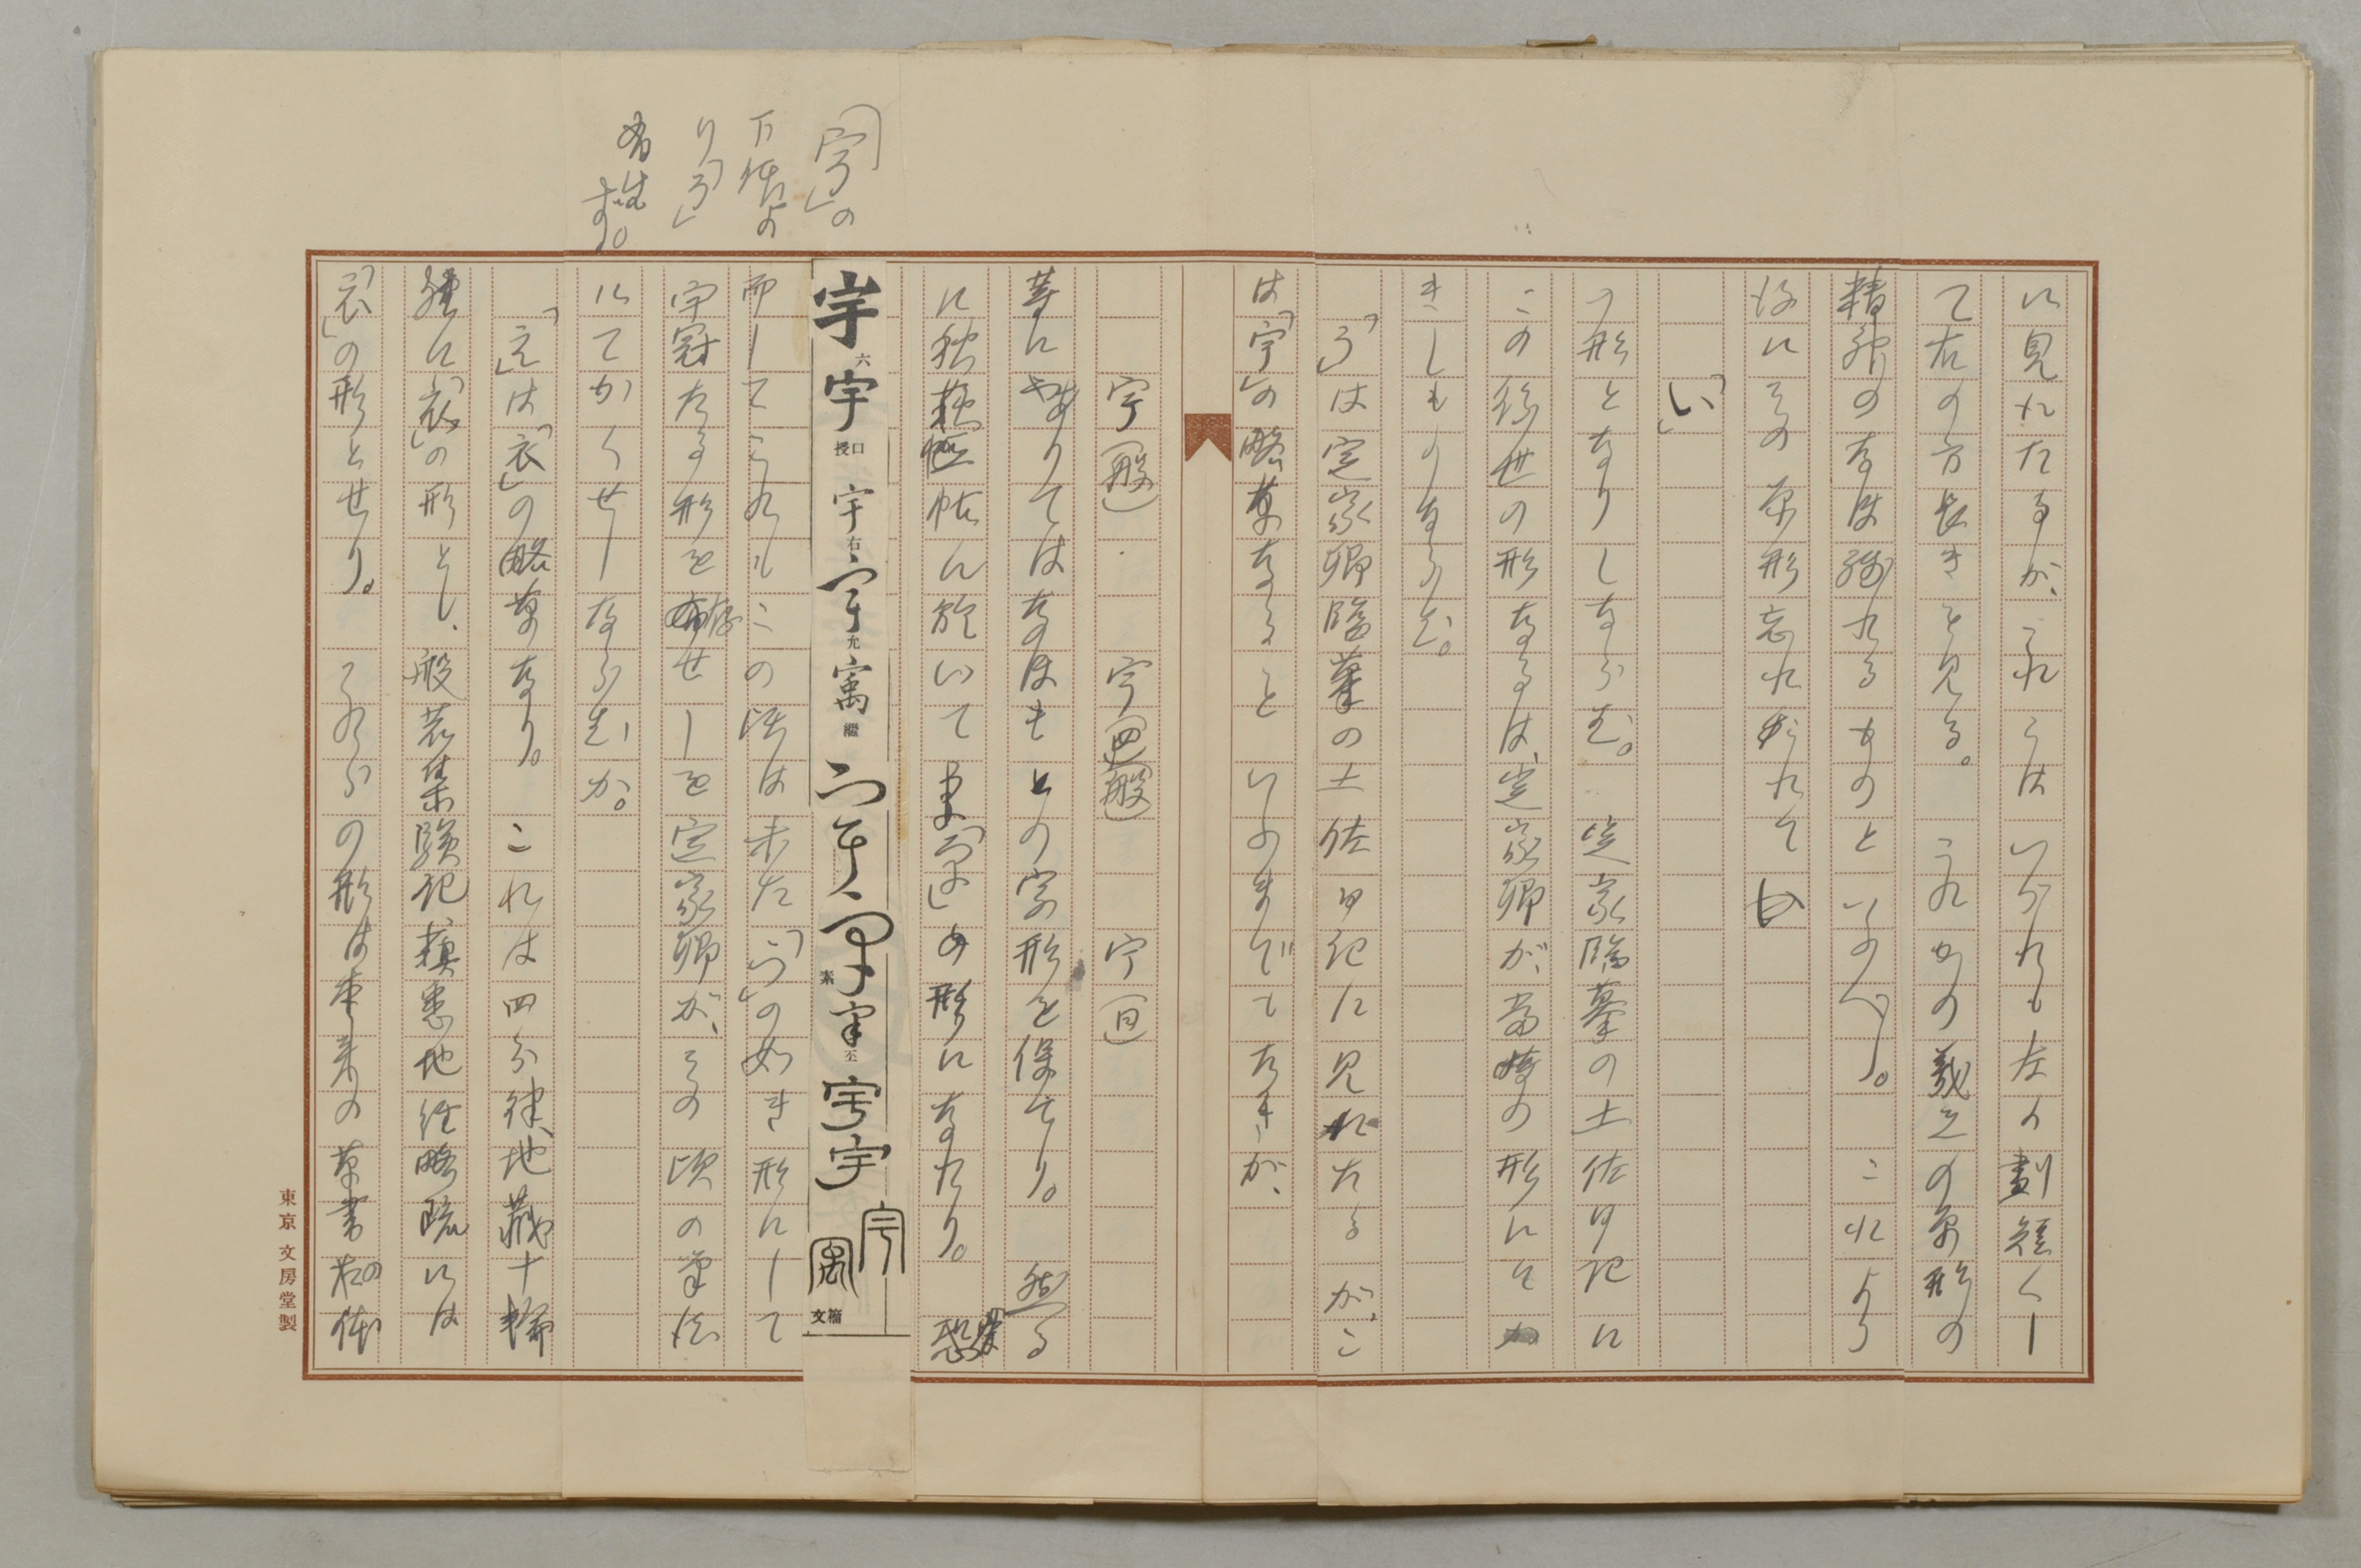 に見れたるが、これらはいづれも左の劃短くし
て右の方長きを見る。 これかの羲之の草形の
精神のなほ残れるものといふべし。 これより
後にその原形忘れられて
「い」
の形となりしならむ。 定家臨摹の土佐日記に
この後世の形なるは、定家卿が、当時の形にて
きしものならむ。
「う」は定家卿臨摹の土佐日記に見れたるが、こ
は「宇」の略草なること いふまでもなきが、
宇(般) 宇(四)(般) 宇(回)
等にありてはなほもとの字形を保てり。 然る
に秋萩帖に於いて
の形になれり。 恐
宇
六
宇
授口
宇
右
宇
允
㝢
繼
宇
素
宇
至
宇
宇
宇
㝢
文籀
而してこれもこの頃は未だ「う」の如き形にして
宇冠たる形を存せしを定家卿が、その頃の筆法
にてかくせしならむか。
「え」は「衣」の略草なり。 これは四分律、地蔵十輪
経に「衣」の形とし、般若集験記、蘇悉地経略疏には
「衣」の形とせり。 これらの形は本来の草書の体
「宇」の
下体よ
り「う」
す。
東京 文房堂製